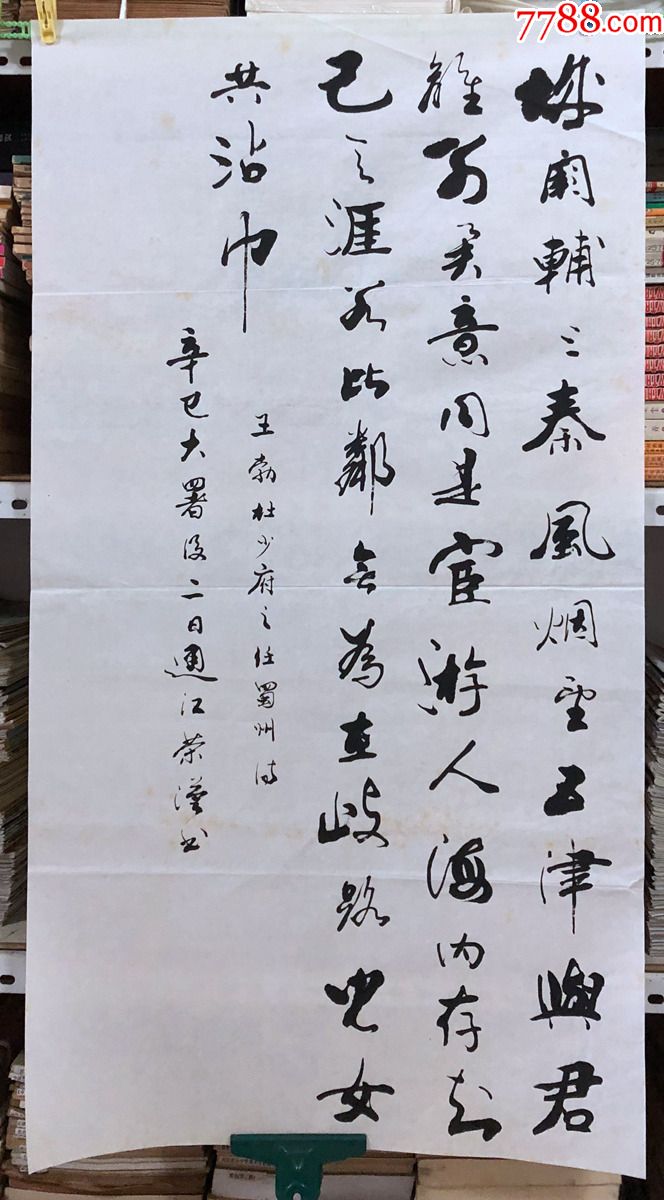 7788.com
城闕輔三秦風烟望五津與君
離别意同是宦游人海内存知
己天涯若比鄰無為在歧路兒女
共沾巾
王勃杜少府之任蜀州詩
辛巳大署後二日通江荣漢书